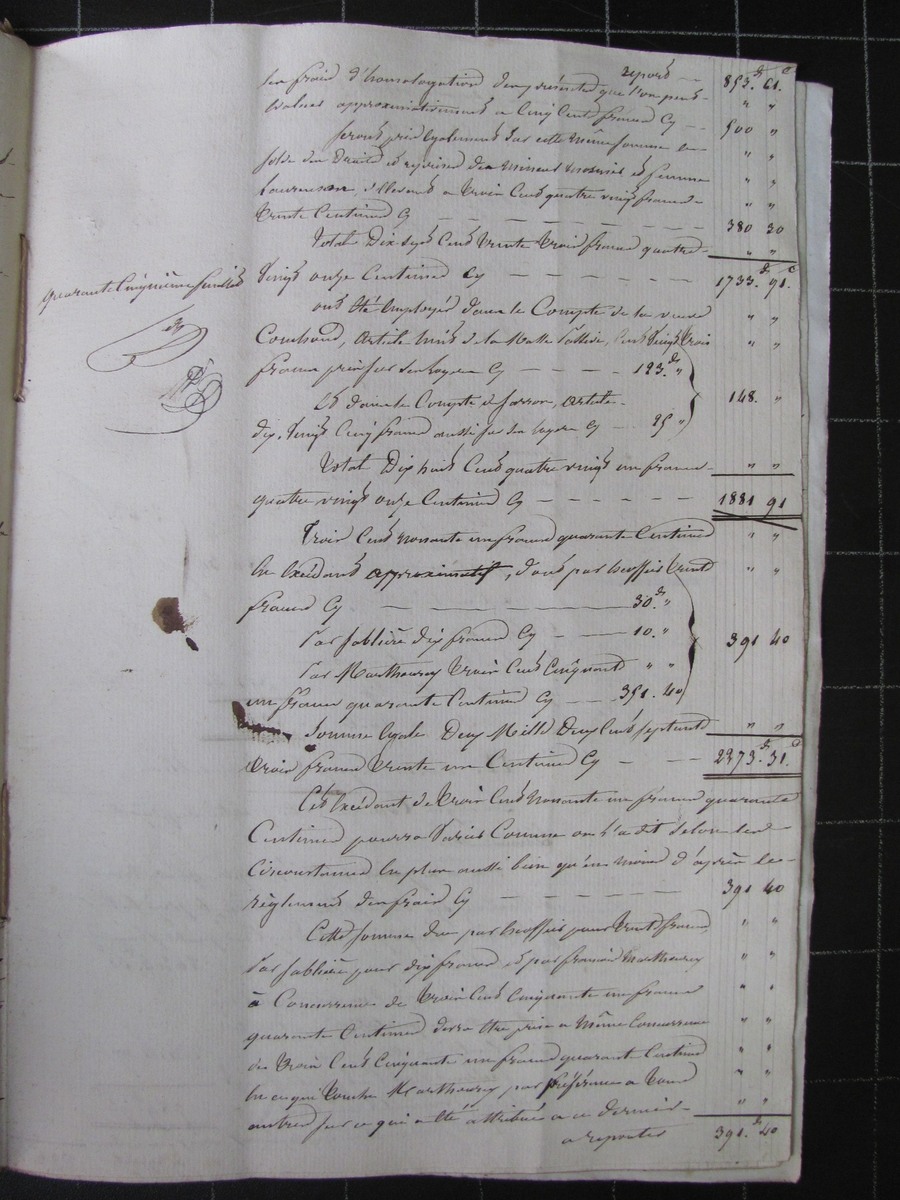 report — 853.f 61.c
les frais d'homologation des présentes que l'on peut " "
évaluer approximativement a Cinq Cent francs Cy — 500 "
seront pris également sur cette même somme le " "
solde des droits et reprises des mineurs et femme " "
s'élevant a trois Cent quatre vingt francs " "
trente Centimes Cy — 380 30
Total Dix sept Cent trente trois francs quatre- " "
quarante Cinquième feuillet
vingt onze Centimes Cy — 1733.f 91.c
ont été employés dans le Compte de la veuve " "
Combaud, article huit de la Masse Passive, Cent vingt trois " "
francs pris sur les loyers Cy — 123.f "
Et dans le Compte de Jarron, article 148. "
dix, vingt Cinq francs aussi sur les loyers Cy — 25 "
Total Dix huit Cent quatre vingt un francs " "
quatre vingt onze Centimes Cy — 1881 91
Trois Cent nonante un francs quarante Centimes " "
en excédant approximatif, dont par trente " "
francs Cy — 30.f "
Par Sablière dix francs Cy — 10. " 391 40
Par Marthourey trois Cent Cinquante " "
un francs quarante Centimes Cy — 351. 40
Somme égale Deux Mille Deux Cent septante " "
trois francs trente un Centimes Cy — 2273.f 31.c
Cet excédant de trois Cent nonante un francs quarante
Centimes pourra varier Comme on l'a dit selon les
Circonstances en plus aussi bien qu'en moins d'après le
règlement des frais Cy — 391 40
Cette somme due par pour trente francs, " "
Par Sablière pour dix francs et par francois Marthourey " "
à Concurrence de trois Cent Cinquante un francs " "
quarante Centimes devra être prise a même Concurrence " "
de trois Cent Cinquante un francs quarante Centimes " "
en ce qui touche Marthourey, par préférence a tous " "
autres sur ce qui a été attribué a ce dernier " "
a reporter 391.f 40